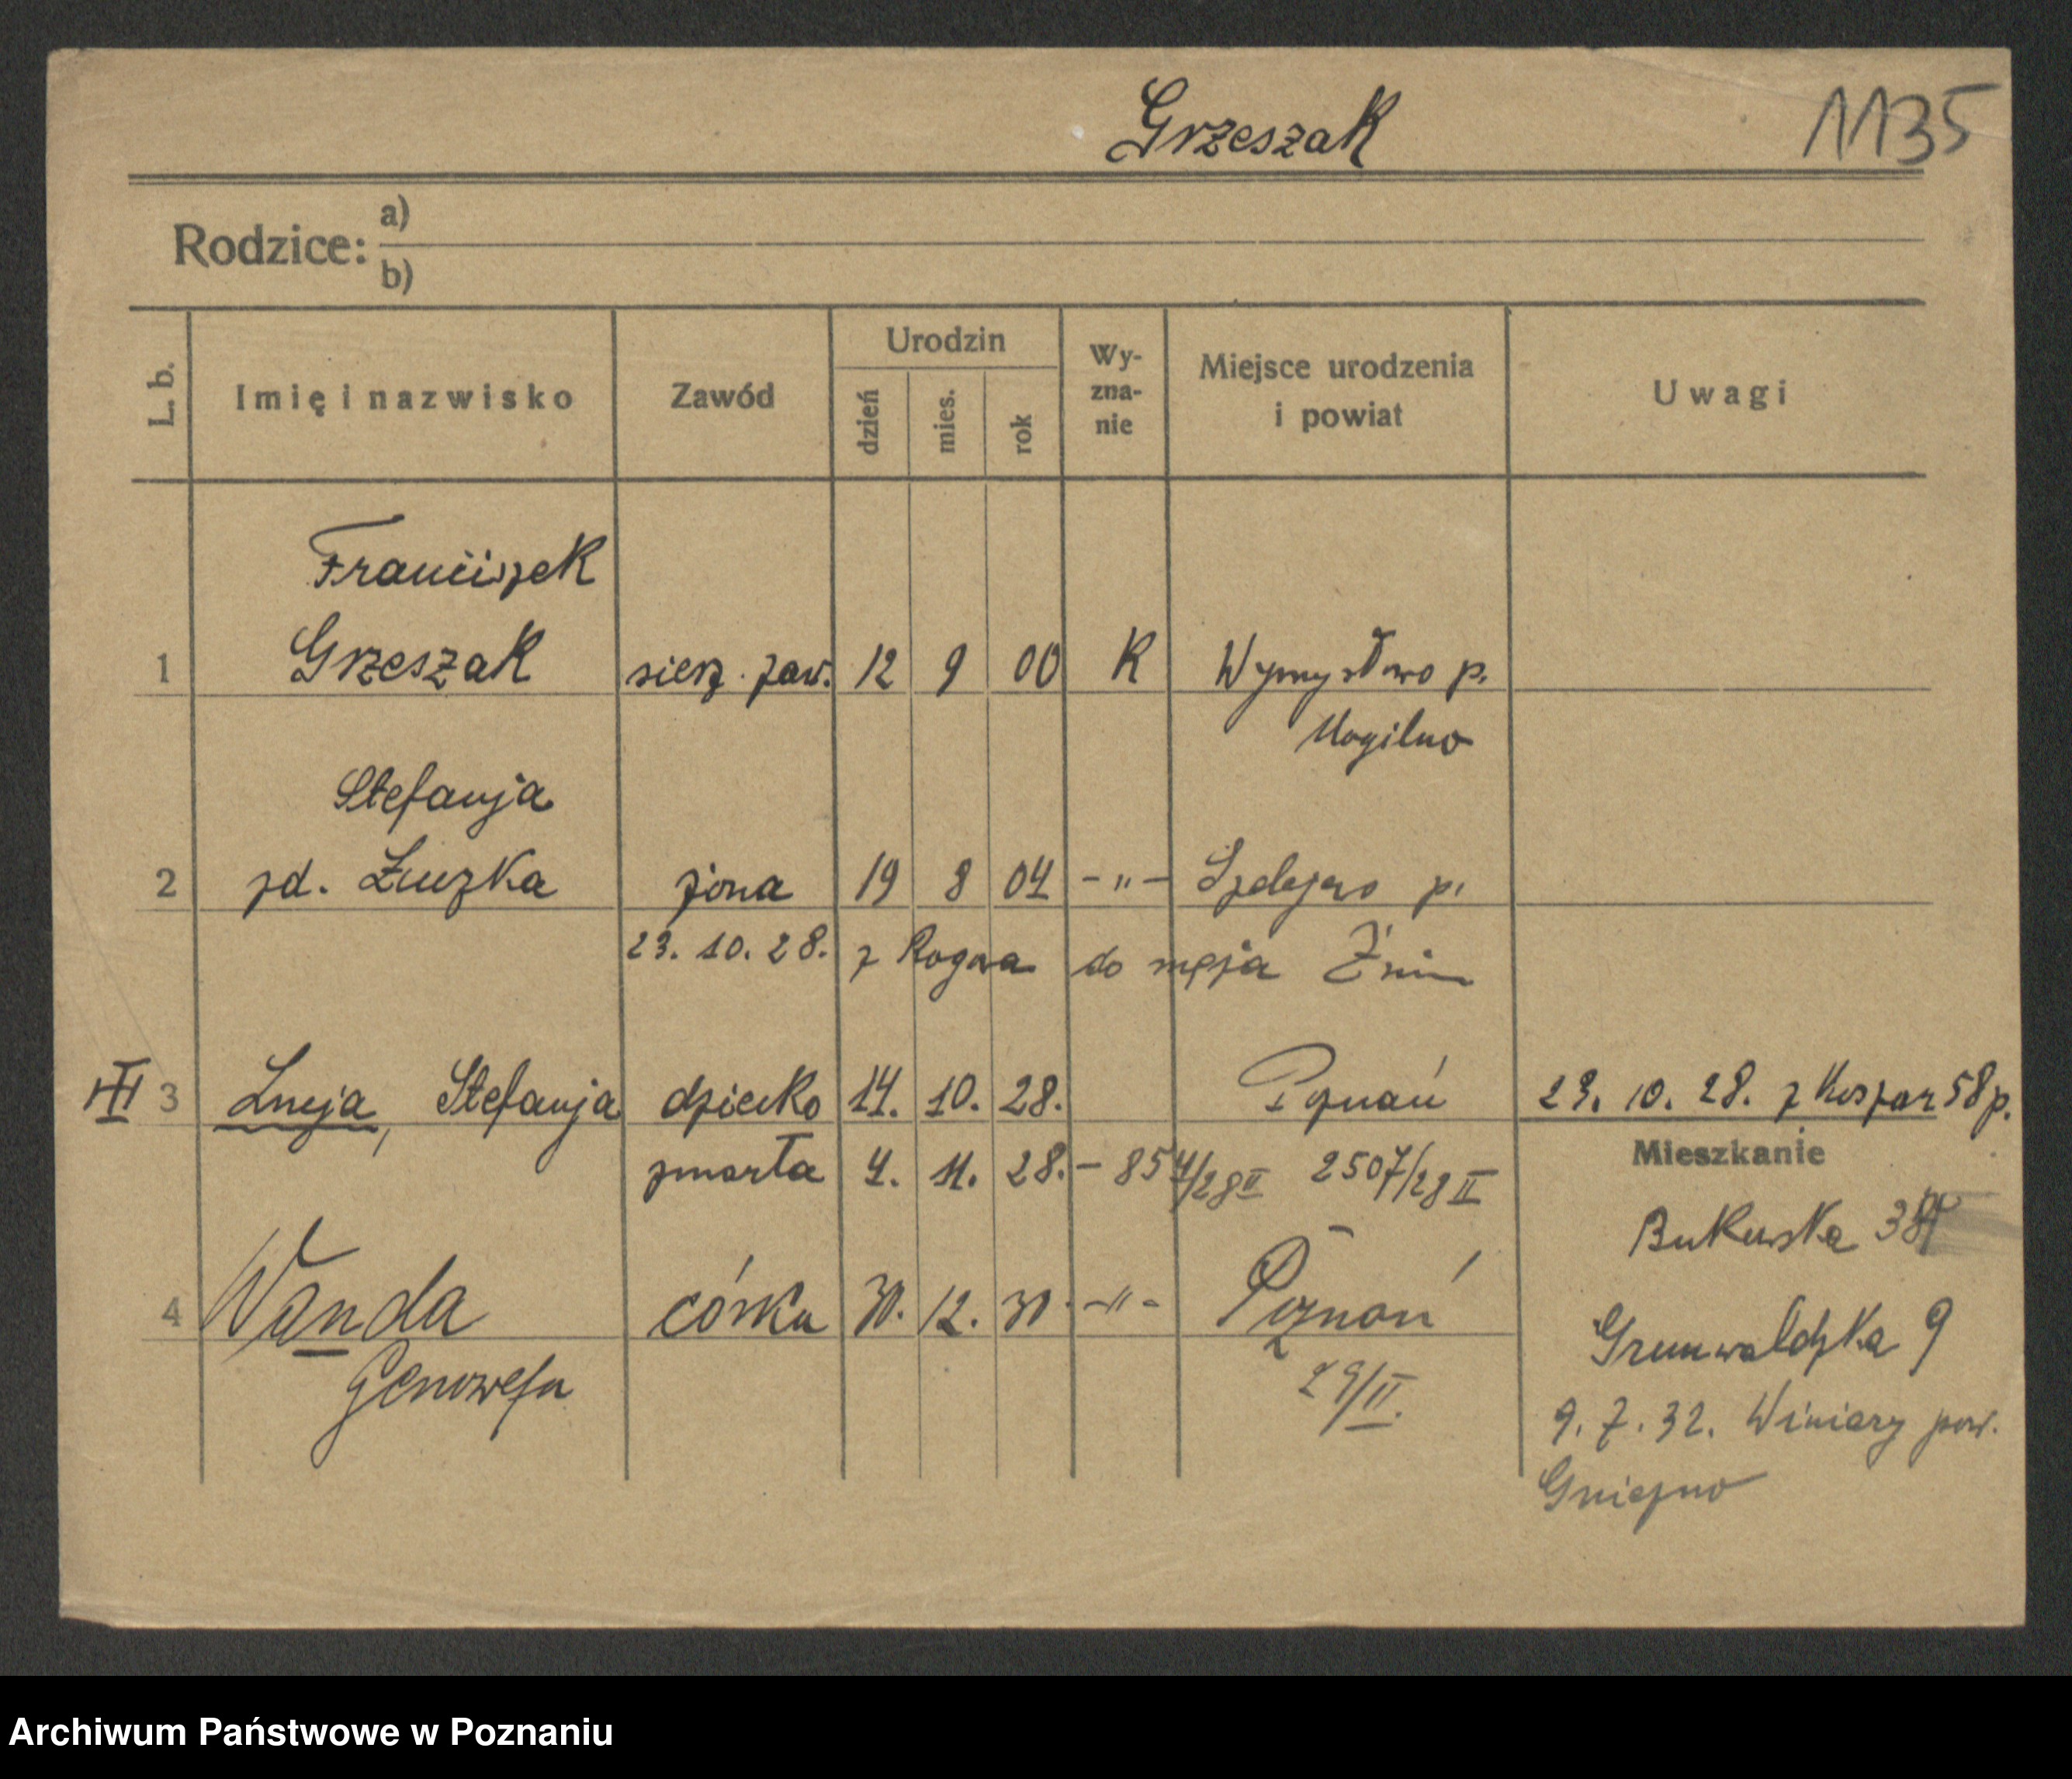 Grzeszak
1135
Rodzice: a)
b)
L. b. Imię i nazwisko Zawód Urodzin dzień mies. rok Wy-zna-nie Miejsce urodzenia i powiat Uwagi
Franciszek
1 Grzeszak sierż. zaw. 12 9 00 K Wymysłowo p.
Mogilno
Stefanja
2 zd. żona 19 8 04 -"- p.
23. 10. 28. z do męża Żnin
III 3 Łucja, Stefanja dziecko 14. 10. 28. Poznań 23. 10. 28. z Koszar 58 p.
zmarła 4. 11. 28. - 854/28 II 2507/28 II
Mieszkanie
Bukowska
4 Wanda córka 30. 12. 30 -"- Poznań
Grunwaldzka 9
Genowefa 29/II.
9. 7. 32. Winiary pow.
Gniezno
Archiwum Państwowe w Poznaniu